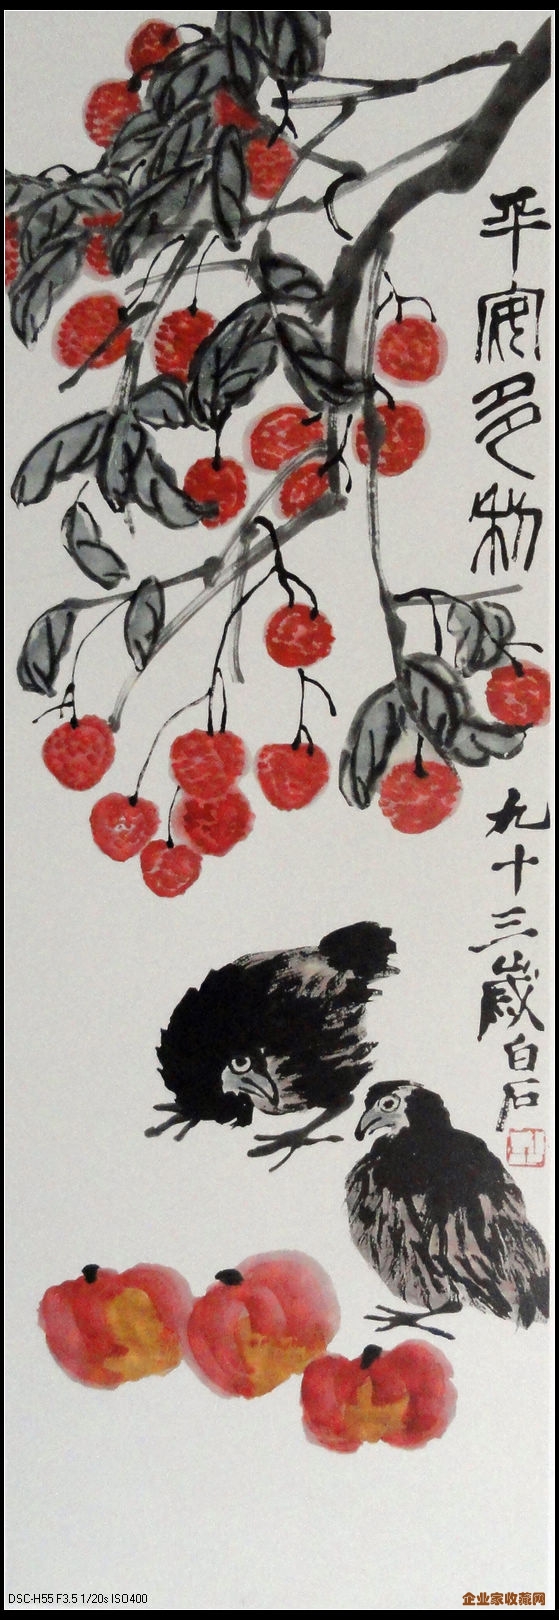 平安多利
九十三歲白石
DSC-H55 F3.5 1/20s ISO400
企业家收藏网